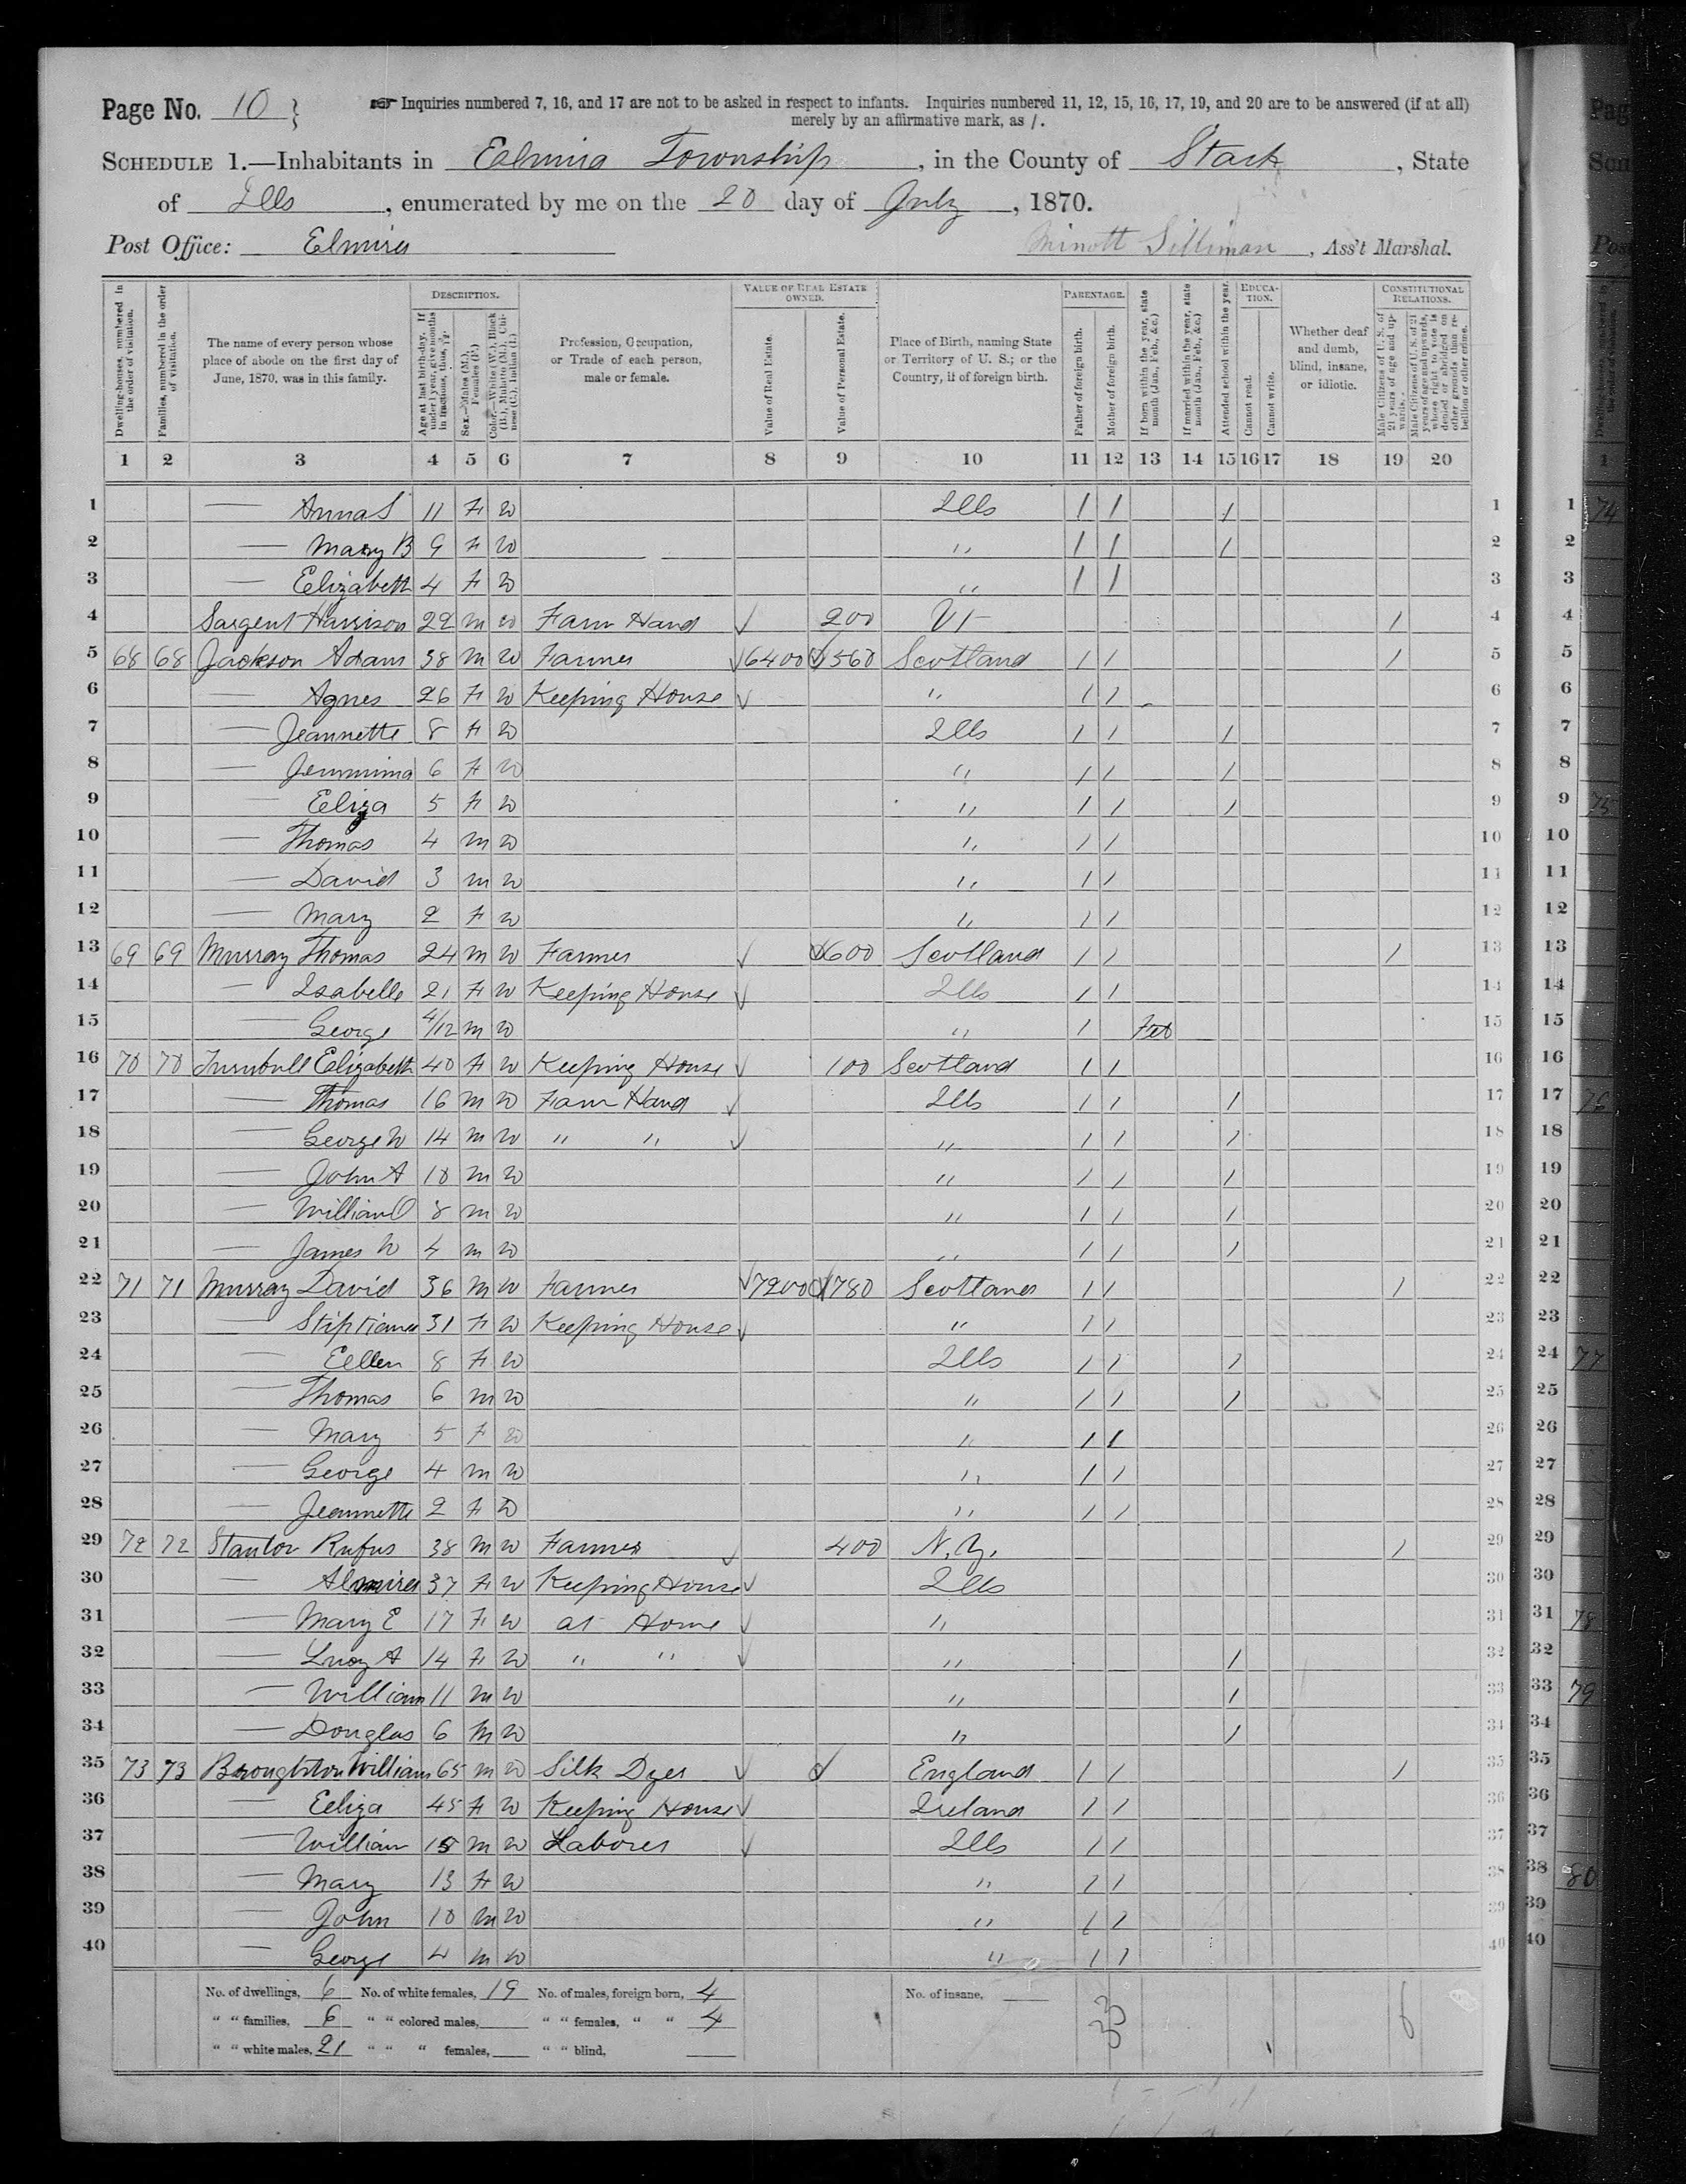 Page No. 10 } Inquiries numbered 7, 16, and 17 are not to be asked in respect to infants. Inquiries numbered 11, 12, 15, 16, 17, 19, and 20 are to be answered (if at all)
merely by an affirmative mark, as /.
SCHEDULE 1.—Inhabitants in Eelmira Township, in the County of Stark, State
of Ills, enumerated by me on the 20 day of July, 1870.
Post Office: Elmira Minott Silliman, Ass't Marshal.
Dwelling-houses, numbered in the order of visitation.
Families, numbered in the order of visitation.
The name of every person whose place of abode on the first day of June, 1870, was in this family.
DESCRIPTION.
Age at last birth-day. If under 1 year, give months in fractions, thus, 3/12.
Sex.—Males (M.), Females (F.)
Color.—White (W.), Black (B.), Mulatto (M.), Chinese (C.), Indian (I.)
Profession, Occupation, or Trade of each person, male or female.
VALUE OF REAL ESTATE OWNED.
Value of Real Estate.
Value of Personal Estate.
Place of Birth, naming State or Territory of U. S.; or the Country, if of foreign birth.
PARENTAGE.
Father of foreign birth.
Mother of foreign birth.
If born within the year, state month (Jan., Feb., &c.)
If married within the year, state month (Jan., Feb., &c.)
Attended school within the year.
EDUCATION.
Cannot read.
Cannot write.
Whether deaf and dumb, blind, insane, or idiotic.
CONSTITUTIONAL RELATIONS.
Male Citizens of U. S. of 21 years of age and upwards.
Male Citizens of U. S. of 21 years of age and upwards, whose right to vote is denied or abridged on other grounds than rebellion or other crime.
1 2 3 4 5 6 7 8 9 10 11 12 13 14 15 16 17 18 19 20
1 — Anna S 11 F W Ills / / / 1
2 — Mary B 9 F W " / / / 2
3 — Eelizabeth 4 F W " / / 3
4 Sargent Harrison 22 M W Farm Hand ✓ 200 Vt / 4
5 68 68 Jackson Adam 38 M W Farmer ✓ 6400 ✓ 560 Scotland / / / 5
6 — Agnes 26 F W Keeping House ✓ " / / 6
7 — Jeannette 8 F W Ills / / / 7
8 — Jemmima 6 F W " / / / 8
9 — Eeliza 5 F W " / / / 9
10 — Thomas 4 M W " / / 10
11 — David 3 M W " / / 11
12 — Mary 2 F W " / / 12
13 69 69 Murray Thomas 24 M W Farmer ✓ 600 Scotland / / / 13
14 — Isabelle 21 F W Keeping House ✓ Ills / / 14
15 — George 4/12 M W " / Feb 15
16 70 70 Turnbull Eelizabeth 40 F W Keeping House ✓ 100 Scotland / / 16
17 — Thomas 16 M W Farm Hand ✓ Ills / / / 17
18 — George W 14 M W " " ✓ " / / / 18
19 — John A 10 M W " / / / 19
20 — William O 8 M W " / / / 20
21 — James W 4 M W " / / / 21
22 71 71 Murray David 36 M W Farmer ✓ 7200 1780 Scotland / / / 22
23 — 31 F W Keeping House ✓ " / / 23
24 — Eellen 8 F W Ills / / / 24
25 — Thomas 6 M W " / / / 25
26 — Mary 5 F W " / / 26
27 — George 4 M W " / / 27
28 — Jeannette 2 F W " / / 28
29 72 72 Stanton Rufus 38 M W Farmer ✓ 400 N.Y. / 29
30 — Almira 37 F W Keeping House ✓ Ills 30
31 — Mary E 17 F W at Home ✓ " 31
32 — Lucy A 14 F W " " ✓ " / 32
33 — William 11 M W " / 33
34 — Douglas 6 M W " / 34
35 73 73 Broughton William 65 M W Silk Dyer ✓ England / / / 35
36 — Eeliza 45 F W Keeping House ✓ Ireland / / 36
37 — William 15 M W Laborer ✓ Ills / / 37
38 — Mary 13 F W " / / 38
39 — John 10 M W " / / 39
40 — George 4 M W " / / 40
No. of dwellings, 6 No. of white females, 19 No. of males, foreign born, 4 No. of insane,
" " families, 6 " " colored males, " " females, " " 4 33 6
" " white males, 21 " " " females, " " blind,
74
75
76
77
78
79
80